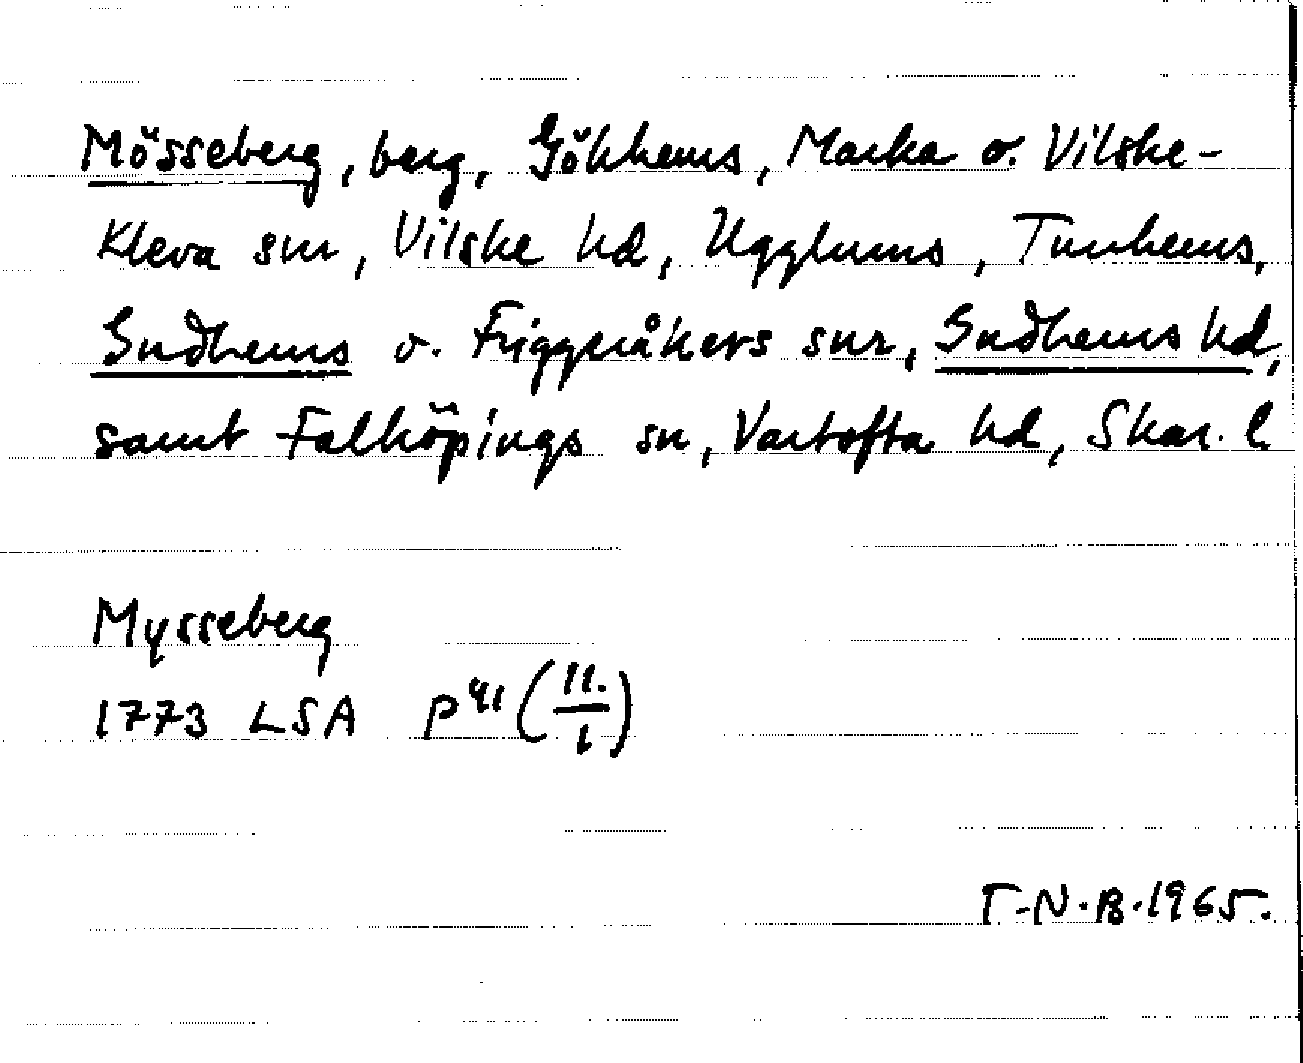 Mösseberg, berg, Gökhems, Marka o. Vilske-
Kleva snr, Vilske hd, Ugglums, Tunhems,
Gudhems o. Friggeråkers snr, Gudhems hd,
samt Falköpings sn, Vartofta hd, Skar. l.
Mysseberg
1773 LSA P 41 (11./1)
T-N.B.1965.